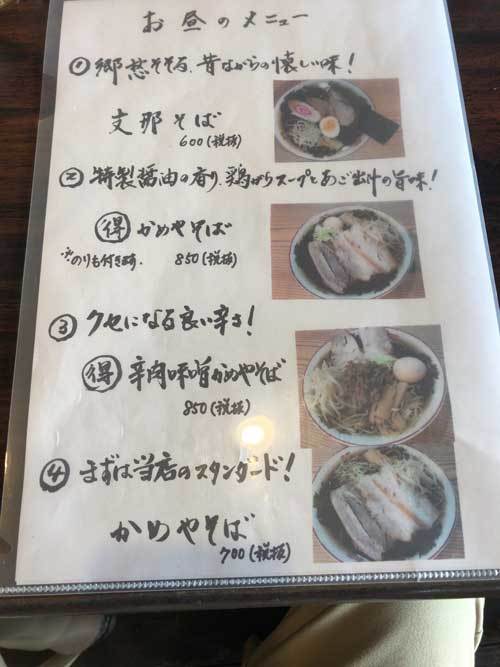 お昼のメニュー
① 郷愁そそる、昔ながらの懐しい味!
支那そば
600(税抜)
② 特製醤油の香り、鶏がらスープとあご出汁の旨味!
得 かめやそば
※のりも付きます。 850(税抜)
③ クセになる良い辛さ!
得 辛肉味噌かめやそば
850(税抜)
④ まずは当店のスタンダード!
かめやそば
700(税抜)